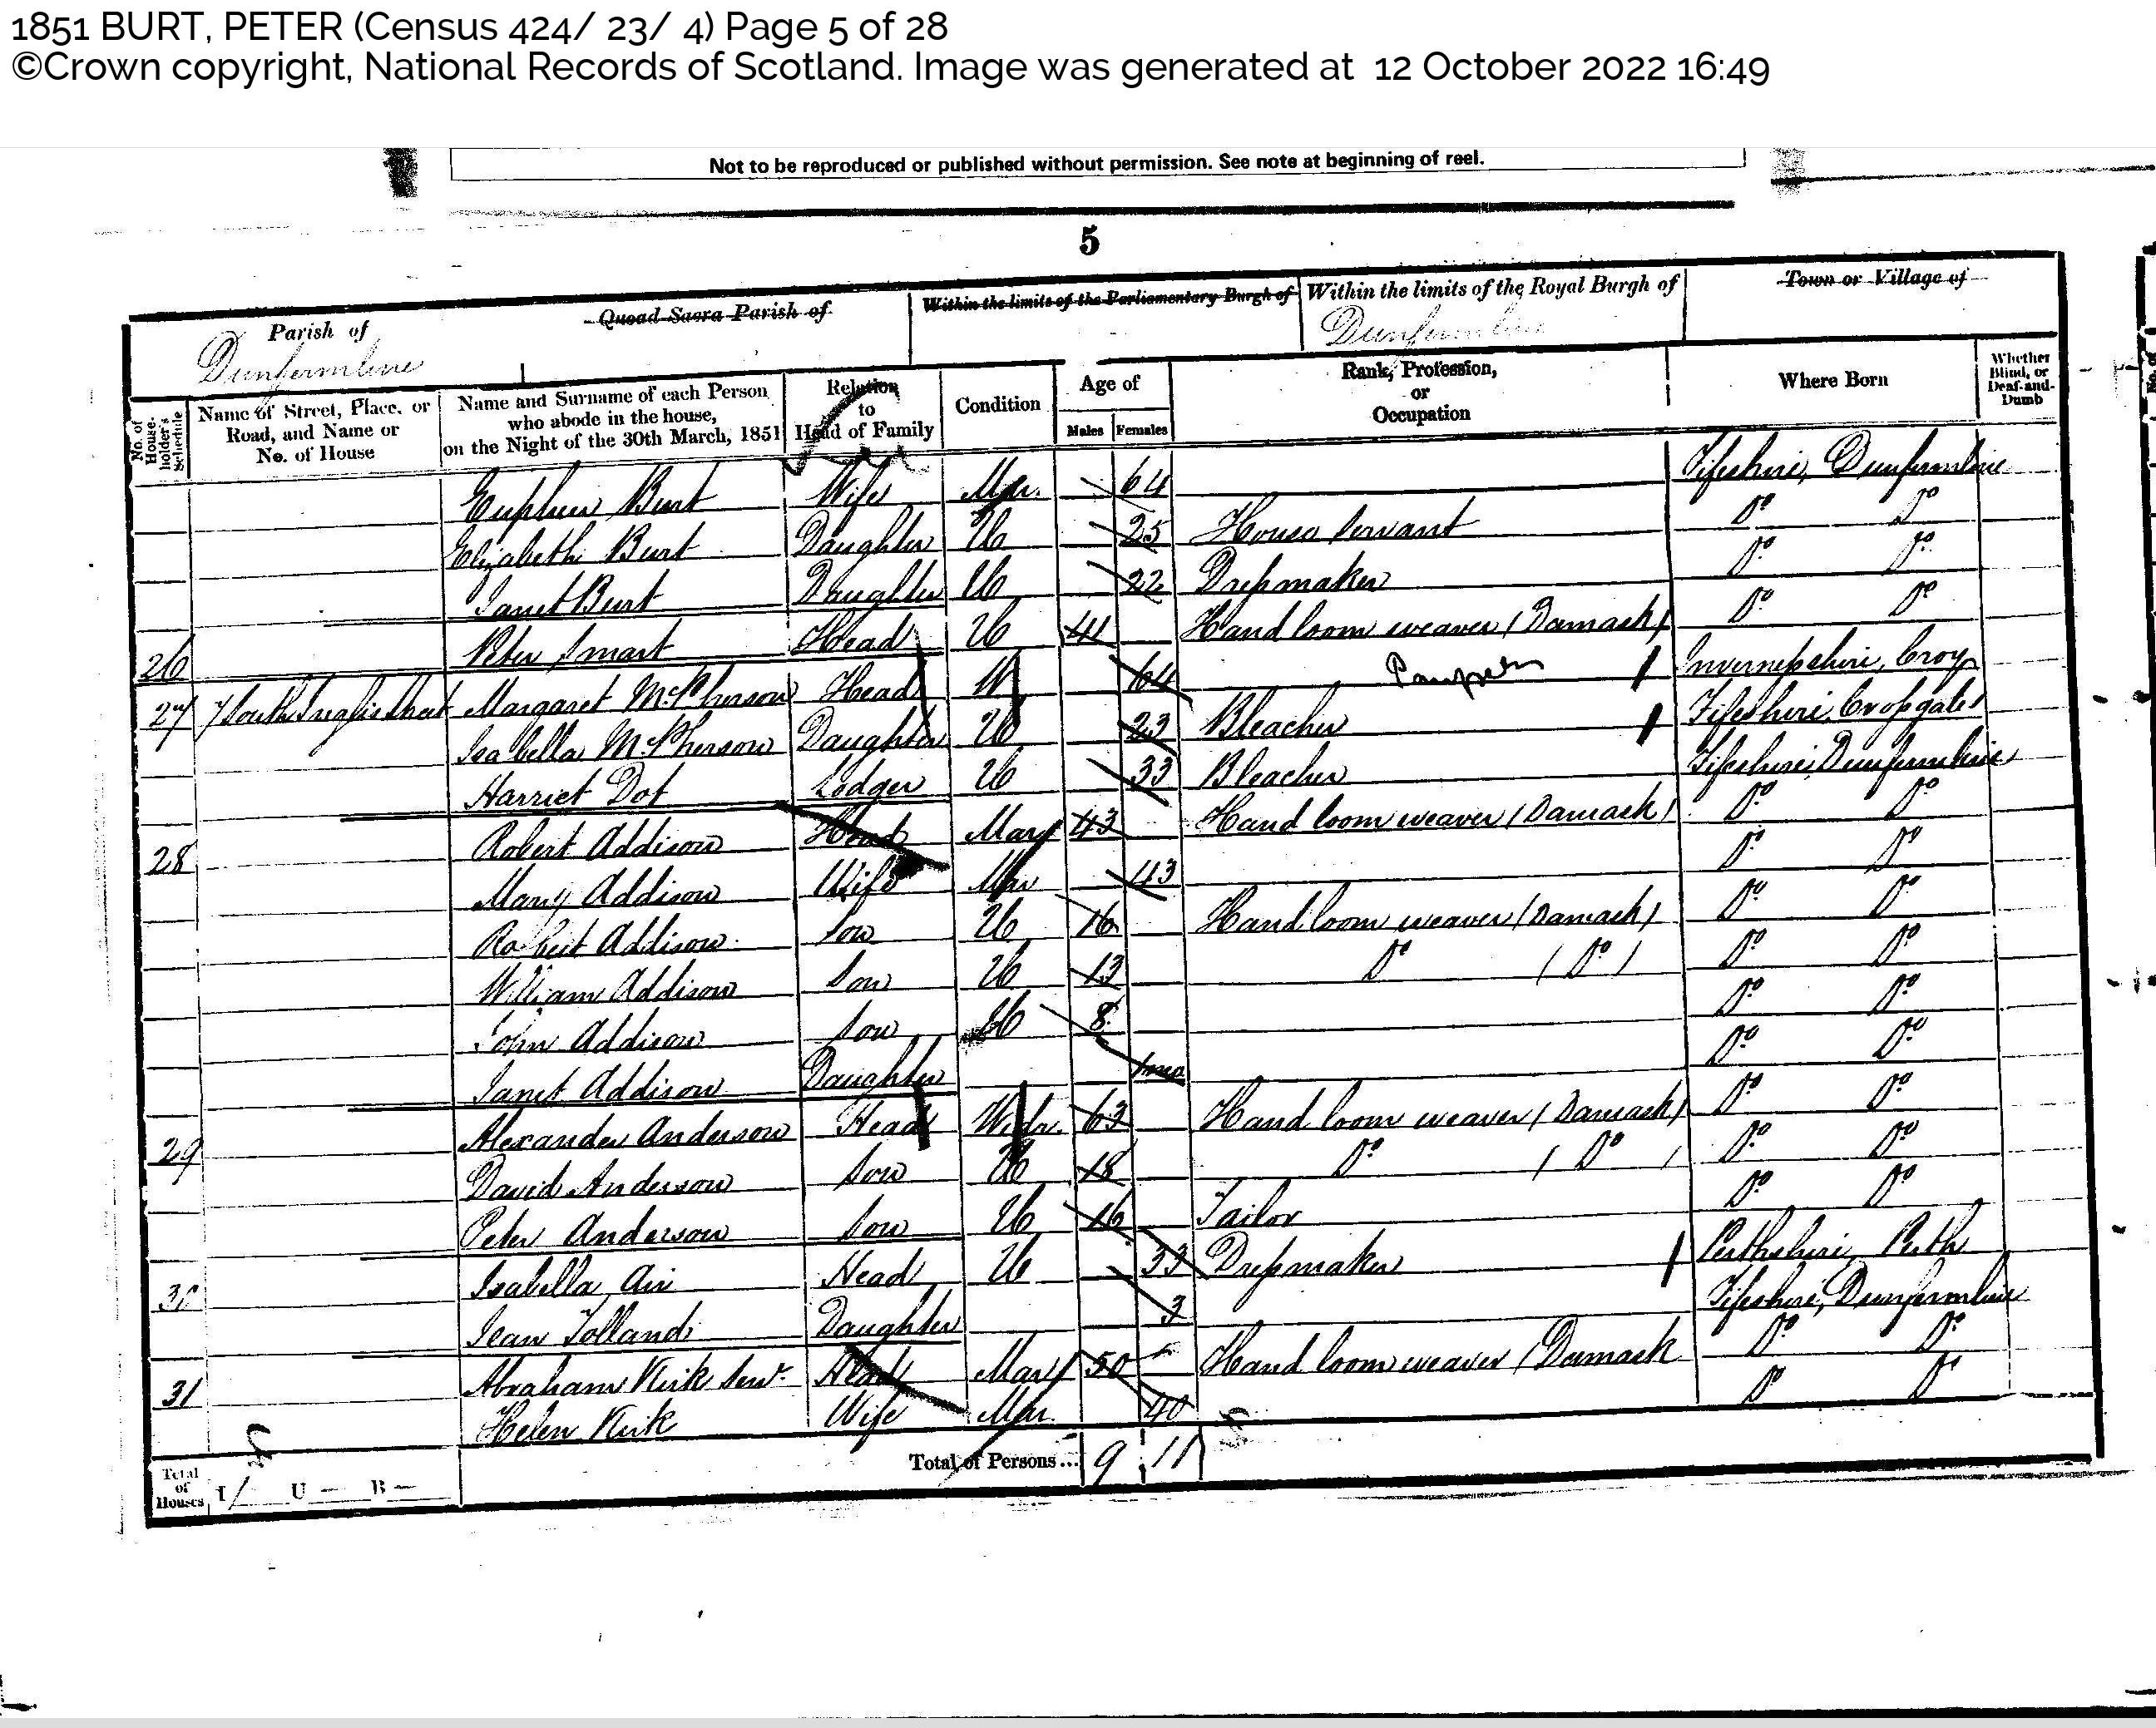 1851 BURT, PETER (Census 424/ 23/ 4) Page 5 of 28
©Crown copyright, National Records of Scotland. Image was generated at 12 October 2022 16:49
Not to be reproduced or published without permission. See note at beginning of reel.
5
Parish of Quoad Sacra Parish of Within the limits of the Parliamentary Burgh of Within the limits of the Royal Burgh of Town or Village of
Dunfermline Dunfermline
No. of House-holder's Schedule Name of Street, Place, or Road, and Name or No. of House Name and Surname of each Person who abode in the house, on the Night of the 30th March, 1851 Relation to Head of Family Condition Age of Males Females Rank, Profession, or Occupation Where Born Whether Blind, or Deaf-and-Dumb
Euphmia Burt Wife Mar. 64 Fifeshire, Dunfermline
Elizabeth Burt Daughter U 25 House Servant Do Do
Janet Burt Daughter U 22 Dressmaker Do Do
26 Peter Smart Head U 41 Hand loom weaver (Damask) Do Do
27 7 South Inglis Street Margaret McPherson Head W 64 Pauper Invernessshire, Croy
Isabella McPherson Daughter U 23 Bleacher Fifeshire, Crossgates
Harriet Dot Lodger U 33 Bleacher Fifeshire, Dunfermline
28 Robert Addison Head Mar 43 Hand loom weaver (Damask) Do Do
Mary Addison Wife Mar 43 Do Do
Robert Addison Son U 16 Hand loom weaver (Damask) Do Do
William Addison Son U 13 Do (Do) Do Do
John Addison Son U 8 Do Do
Janet Addison Daughter 1mo Do Do
29 Alexander Anderson Head Widr. 63 Hand loom weaver (Damask) Do Do
David Anderson Son U 18 Do (Do) Do Do
Peter Anderson Son U 16 Tailor Do Do
30 Isabella Air Head U 33 Dressmaker Perthshire, Perth
Jean Tolland Daughter 3 Fifeshire, Dunfermline
31 Abraham Kirk Senr. Head Mar 50 Hand loom weaver (Damask Do Do
Helen Kirk Wife Mar. 40 Do Do
Total of Houses I / U — B — Total of Persons... 9 11